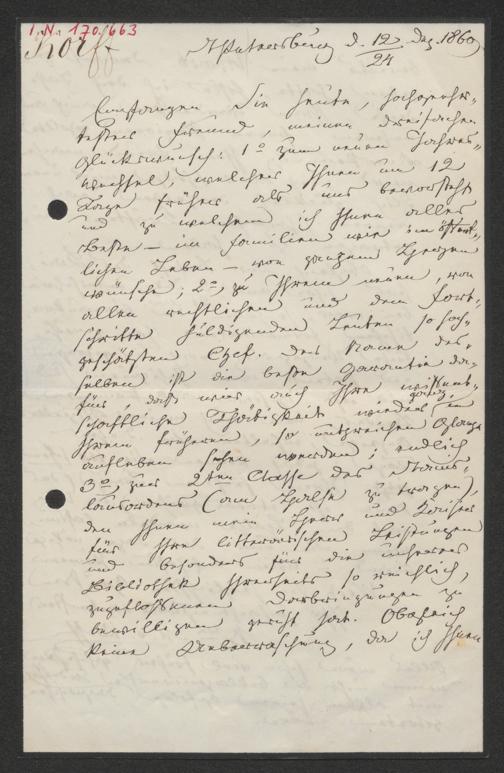 I.N. 170.663
Korff
St Petersburg d. 12/24 Dez. 1860
Empfangen Sie heute, hochgeehr-
tester Freund, meinen dreifachen
Glückwunsch: 1o zum neuen Jahres-
wechsel, welcher Ihnen um 12
Tage früher als uns bevorsteht
und zu welchem ich Ihnen alles
Beste – im Familien wie im öffent-
lichen Leben – von ganzem Herzen
wünsche; 2o, zu Ihrem neuen, von
allen rechtlichen und dem Fort-
schritte huldigenden Leuten so hoch-
geschätzten Chef. Der Name des-
selben ist die beste Garantie da-
für, daß wir auch Ihre wissent-
schaftliche Thätigkeit wieder ganz in
Ihrem früheren, so ruhmreichen Glanze
aufleben sehen werden; endlich
3o, zur 2ten Classe des Stanis-
lausordens (am Halse zu tragen),
den Ihnen mein Herr und Kaiser
für Ihre litterärischen Leistungen
und besonders für die unserer
Bibliothek Ihrerseits so reichlich
zugeflossenen Darbringungen zu
bewilligen geruht hat. Obgleich
keine Ueberraschung, da ich Ihnen